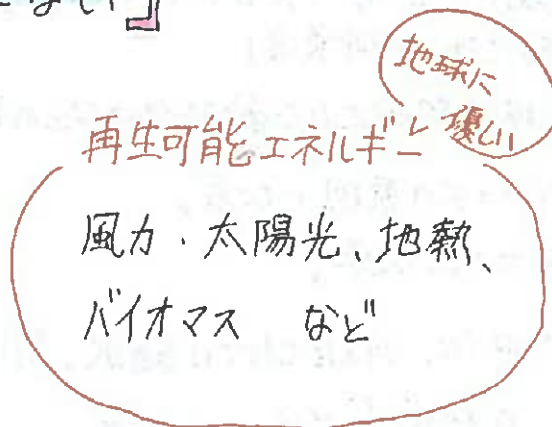 ない
地球に
優しい
再生可能エネルギー
風力・太陽光、地熱、
バイオマス など